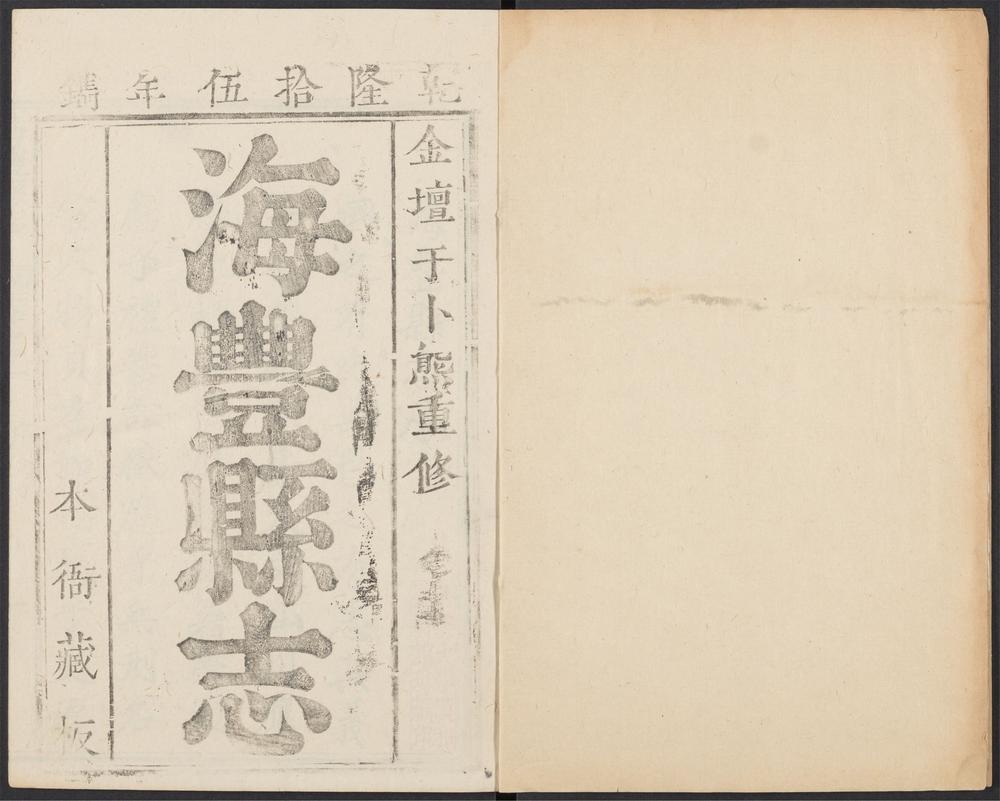 乾隆拾伍年鐫
金壇于卜熊重修
海豐縣志
本衙藏板